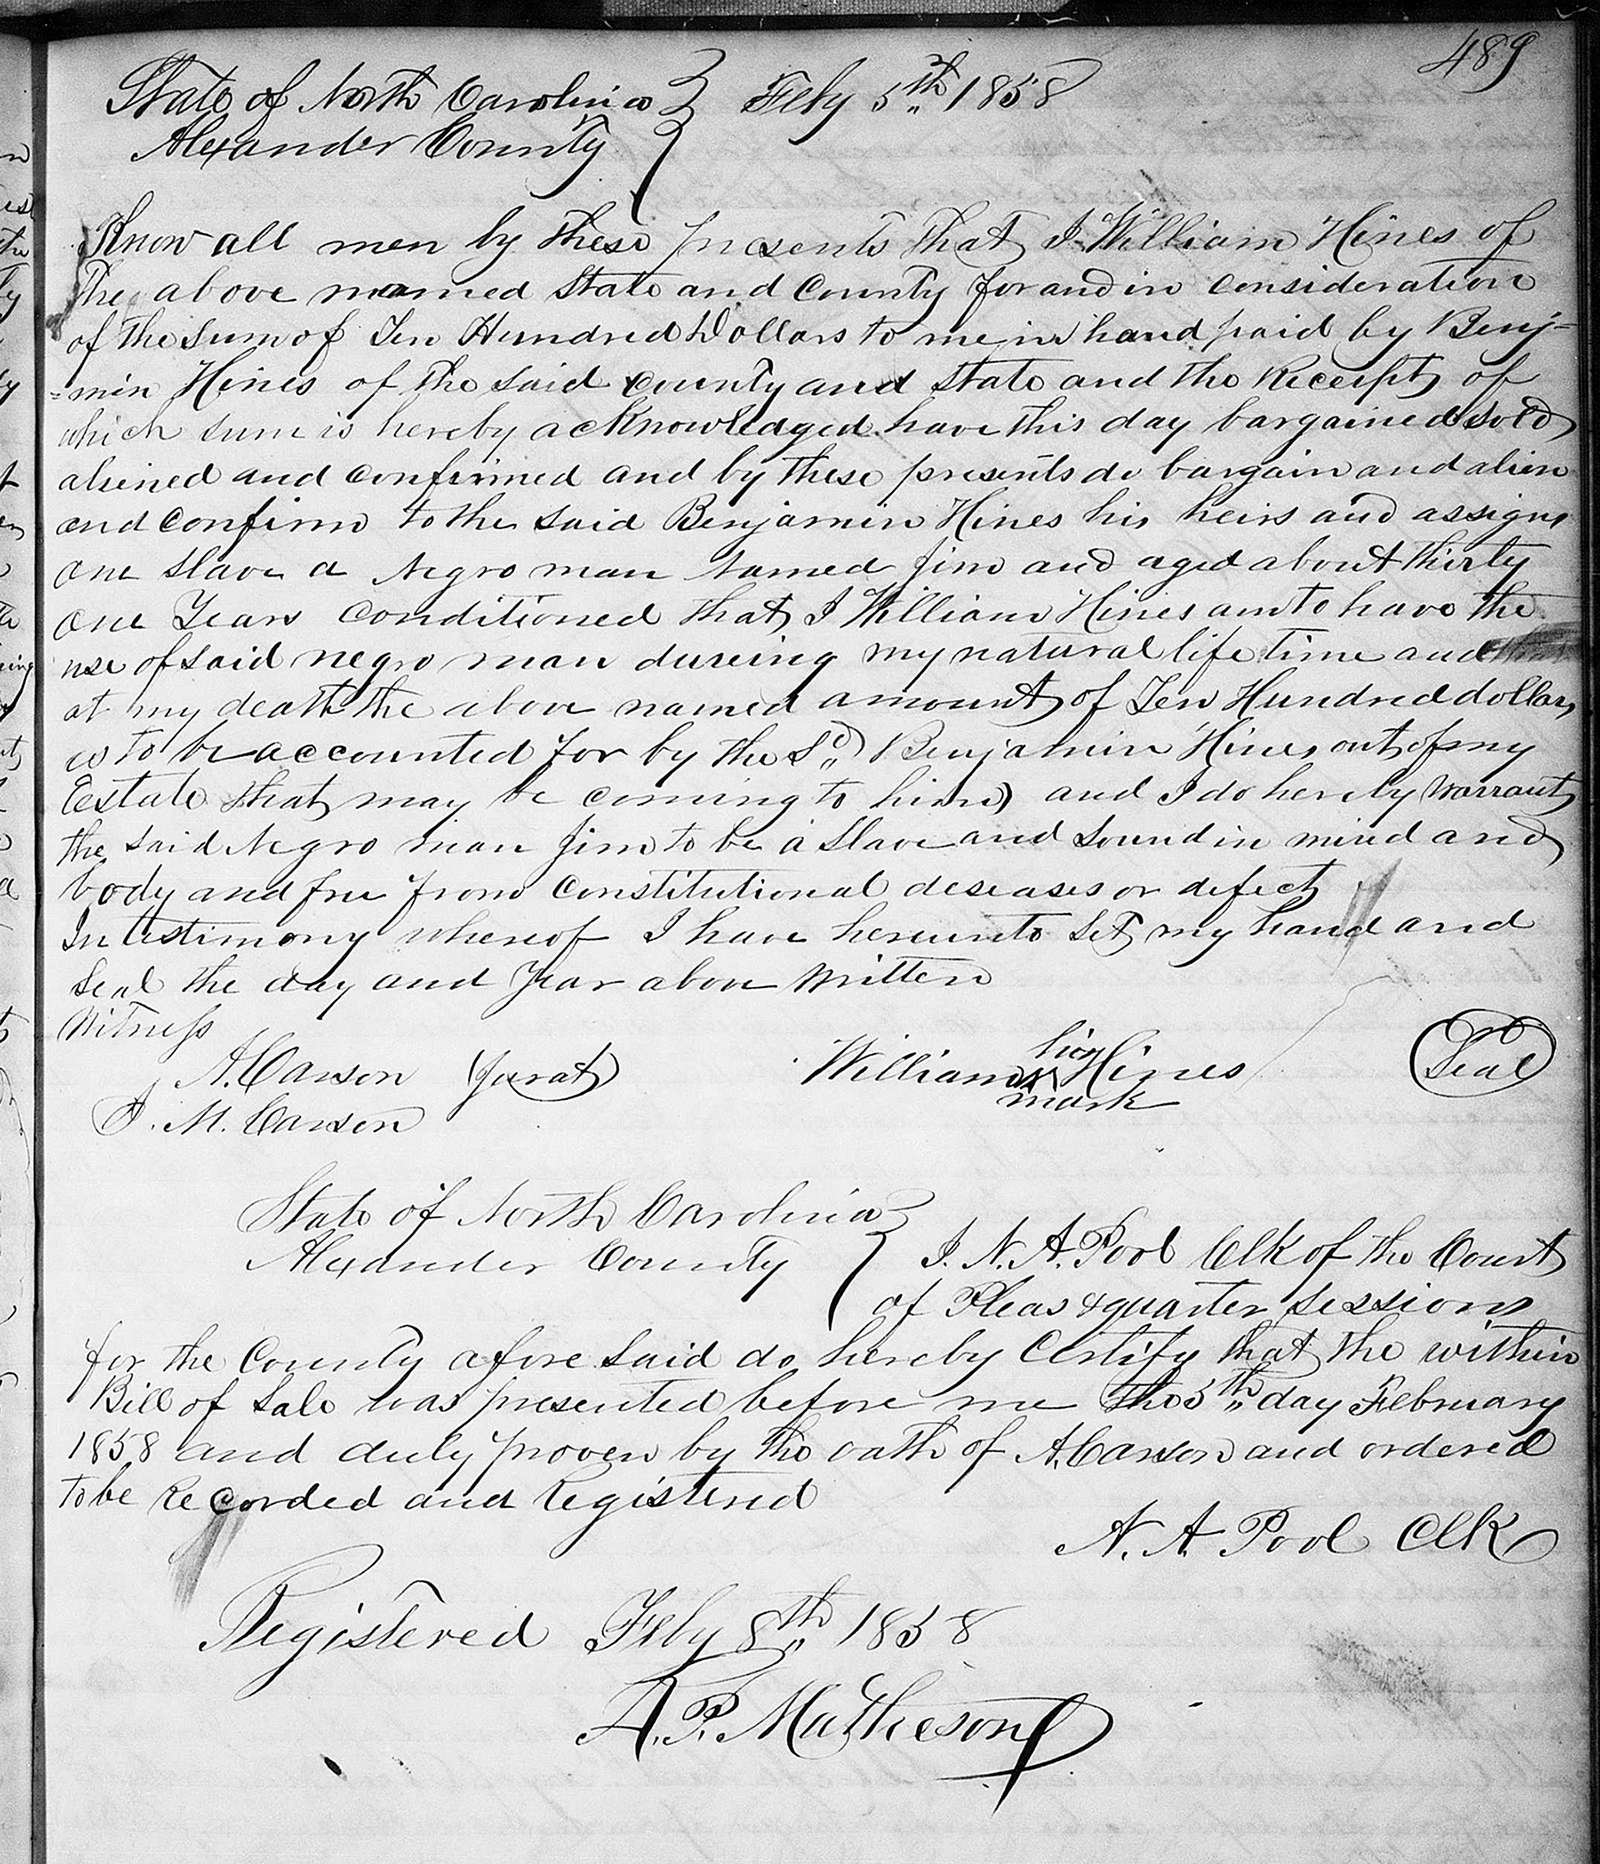 489
State of North Carolina } Feby 5th 1858
Alexander County
Know all men by these presents that I William Hines of
the above named State and County for and in consideration
of the sum of Ten Hundred Dollars to me in hand paid by Benj-
=min Hines of the said county and State and the Receipt of
which sum is hereby acknowledged have this day bargained sold
aliened and confirmed and by these presents do bargain and alien
and confirm to the said Benjamin Hines his heirs and assigns
one slave a Negro man named Jim and aged about thirty
one Years conditioned that I William Hines am to have the
use of said negro man dureing my natural life time and that
at my death the above named amount of Ten Hundred dollars
is to be accounted for by the Sd Benjamin Hines out of my
Eestate that may be coming to him) and I do hereby Warrant
the said Negro man Jim to be a Slave and Sound in mind and
body and free from constitutional deseases or defect
In testimony whereof I have hereunto set my hand and
seal the day and Year above Written
Witness
A. Carson (Jurat) William his X mark Hines (Seal)
J. M. Carson
State of North Carolina }
Alexander County } I. N. A. Pool Clk of the Court
of Pleas & quarter sessions
for the County afore said do hereby Certify that the within
Bill of Sale was presented before me the 5th day February
1858 and duly proven by the oath of A. Carson and ordered
to be Recorded and Registered
N. A. Pool Clk
Registered Feby 8th 1858
A. P. Matheson